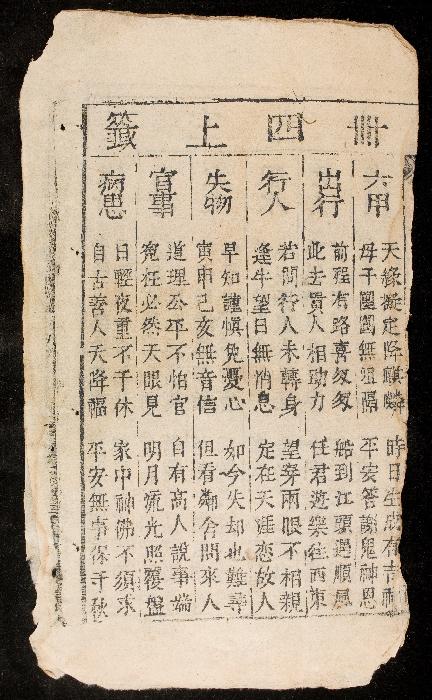 卌四上籤
六甲
天緣擬定降麒麟 時日生成有吉神
母子團圓無阻隔 平安答謝鬼神恩
出行
前程有路喜匆匆 船到江頭遇順風
此去貴人相助力 任君遊樂往西東
行人
若問行人未轉身 望穿兩眼不相親
逢牛望日無消息 定在天涯恋故人
失物
早知謹慎免憂心 如今失却也難尋
寅申己亥無音信 但看鄰舍問來人
官事
道理公平不怕官 自有高人說事端
冤枉必然天眼見 明月流光照覆盤
病患
日輕夜重不干休 家中神佛不須求
自古善人天降福 平安無事保千秋